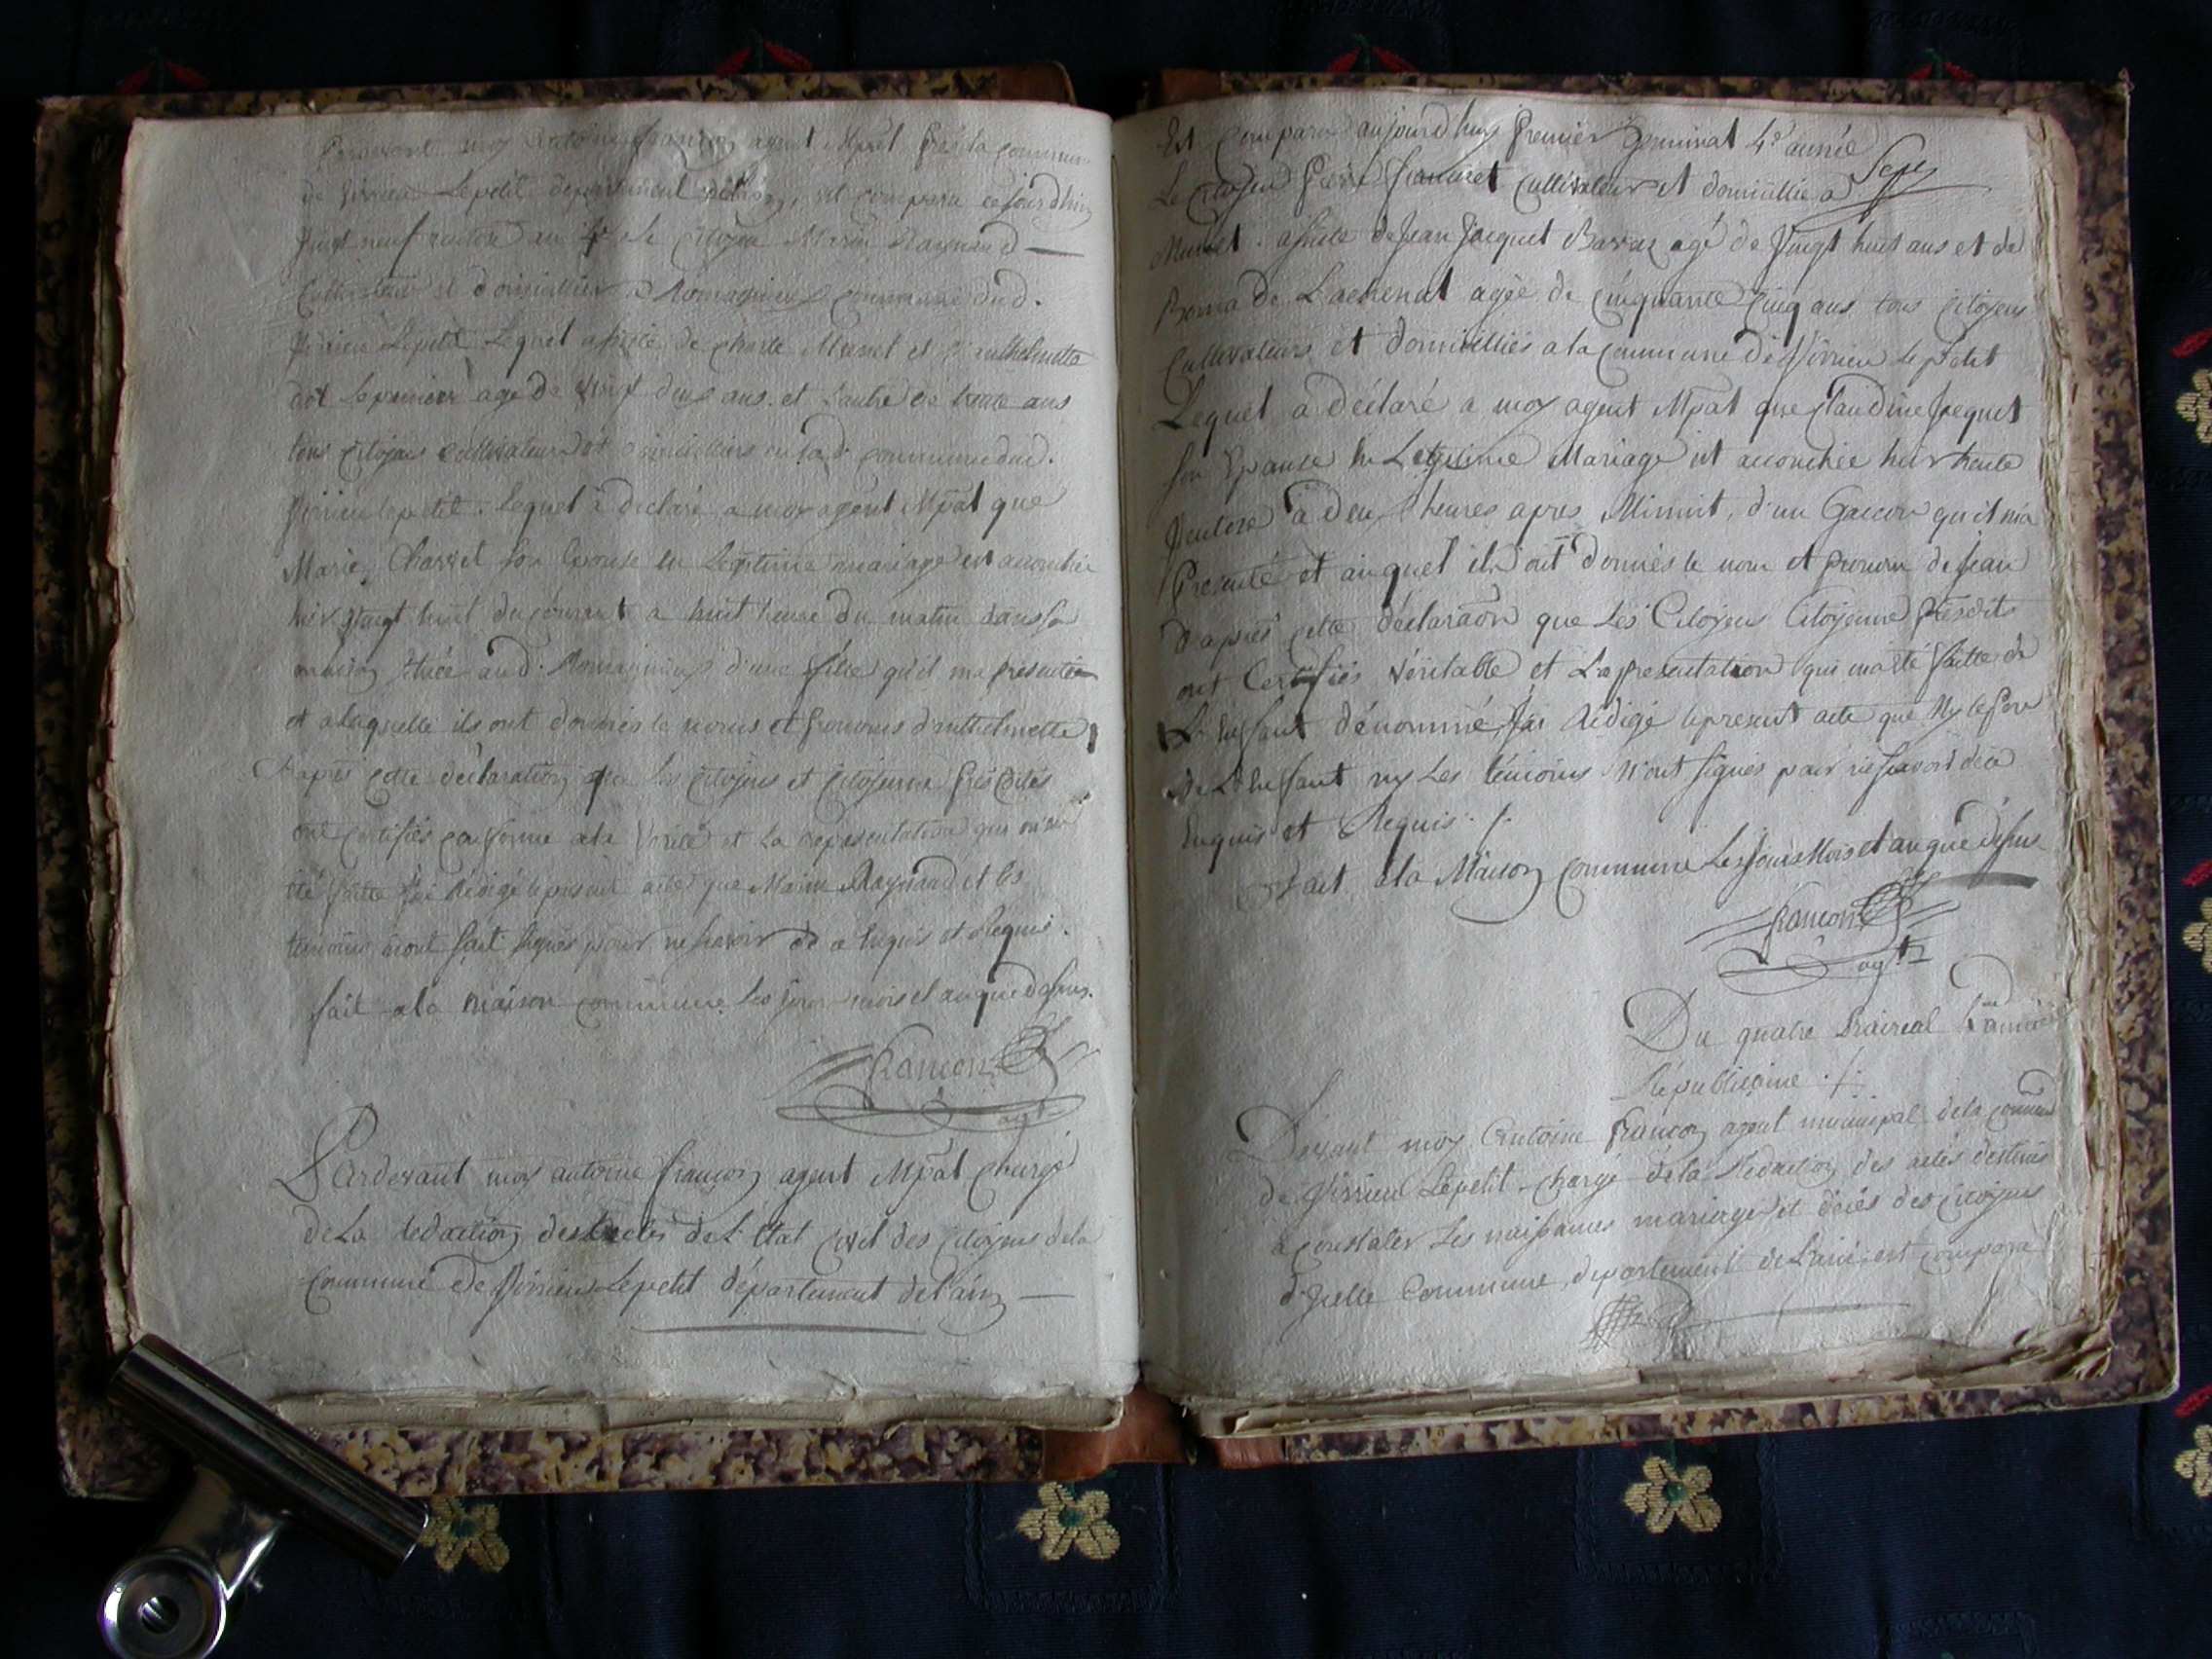 Pardevant moy Antoine françon agent Mpal de la commune
de Virieu Lepetit département, est comparu cejourdhuy
Vingt neuf an 4e le Citoyen Marin Raynaud
Cultivateur et domicillier a Romagnieu commune dud.
Virieu Lepetit Lequel assisté de Charle Munet et
Lepremier agé de Vingt deux ans. et l'autre de trente ans
tous Citoyens Cultivateurs et domicilliers en lad. commune dud.
Virieu lepetit. lequel à déclaré a moy agent Mpal que
Marie Charvet son Epouse en Legitime mariage est accouchée
hier Vingt huit du courant a huit heure du matin dans sa
maison située aud. Romagnieu d'une fille qu'il ma presentée
et alaquelle ils ont donnés le noms et prenoms d'anthelmette
D'aprés cette déclaration que les Citoyens et Citoyenne présdites
ont certifiés conforme ala Vérité et La representation qui m'en
été faitte J'ai Rédigé le present acte que Marin Raynaud et les
temoins n'ont signés pour ne savoir de ce Enquis et Requis.
fait ala maison commune les jour mois et an que dessus.
françon
agt
Pardevant moy antoine françon agent Mpal chargé
de La redaction des actes de L'Etat Civil des Citoyens dela
Commune de Virieu Lepetit département de l'ain
Est Comparu aujourdhuy Premier Germinal 4e année
Le Citoyen Pierre Cultivateur et domicillié a
Munet. assisté de Jean Jacquet Barraz agé de Vingt huit ans et de
de Lachenal agée de Cinquante Cinq ans tous Citoyens
Cultivateurs et domicilliés a la commune de Virieu le petit
Lequel à déclaré a moy agent Mpal que Claudine Jacquet
son Epouse En Legitime Mariage est accouchée hier trente
Ventose à deux heures apres Minuit, d'un Garcon qu'il m'a
Presenté et auquel ils ont donnés le nom et prenom de Jean
D'apres cette déclaraon que Les Citoyens Citoyenne présdits
ont Certifiés Véritable et La presentation qui ma été faitte de
L'Enfant dénommé J'ai Rédigé le present acte que Ny le Pere
de L'Enfant ny Les témoins N'ont signés pour ne savoir de ce
Enquis et Requis ./.
Fait ala Maison commune Les Jours Mois et an que dessus
françon
agt
Du quatre Prairéal année
Républicaine ./.
Devant moy Antoine françon agent municipal de la commune
de Virieu Lepetit chargé dela Rédaction des actes destinés
a constater Les naissances mariages et décés des Citoyens
d'Icelle Commune, departement de L'ain, est comparu